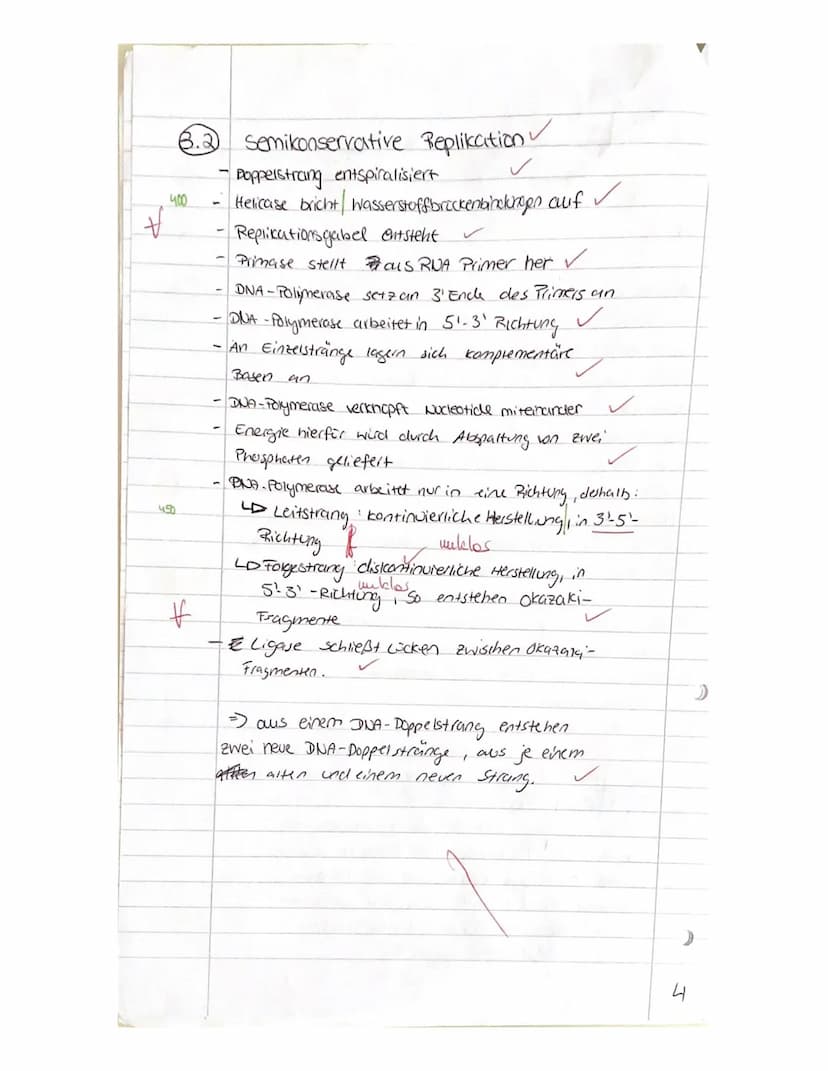 3.2 Semikonservative Replikation
- Doppelstrang entspiralisiert
400 - Helicase bricht | Wasserstoffbrückenbindungen auf
- Replikationsgabel entsteht
- Primase stellt aus RNA Primer her
- DNA-Polymerase setz an 3' Ende des Primers an
- DNA-Polymerase arbeitet in 5'-3' Richtung
- An Einzelstränge lagern sich komplementäre
Basen an
- DNA-Polymerase verknüpft Nucleotide miteinander
- Energie hierfür wird durch Abspaltung von zwei
Phosphaten geliefert
- DNA-Polymerase arbeitet nur in eine Richtung, deshalb:
450 ↳ Leitstrang: kontinuierliche Herstellung, in 3'-5'-
Richtung f unklar
↳ Folgestrang: diskontinuierliche Herstellung, in
unklar
5'-3'-Richtung, so entstehen Okazaki-
Fragmente
- Ligase schließt Lücken zwischen Okazaki-
Fragmenten.
=> aus einem DNA-Doppelstrang entstehen
zwei neue DNA-Doppelstränge, aus je einem
alten und einem neuen Strang.
4